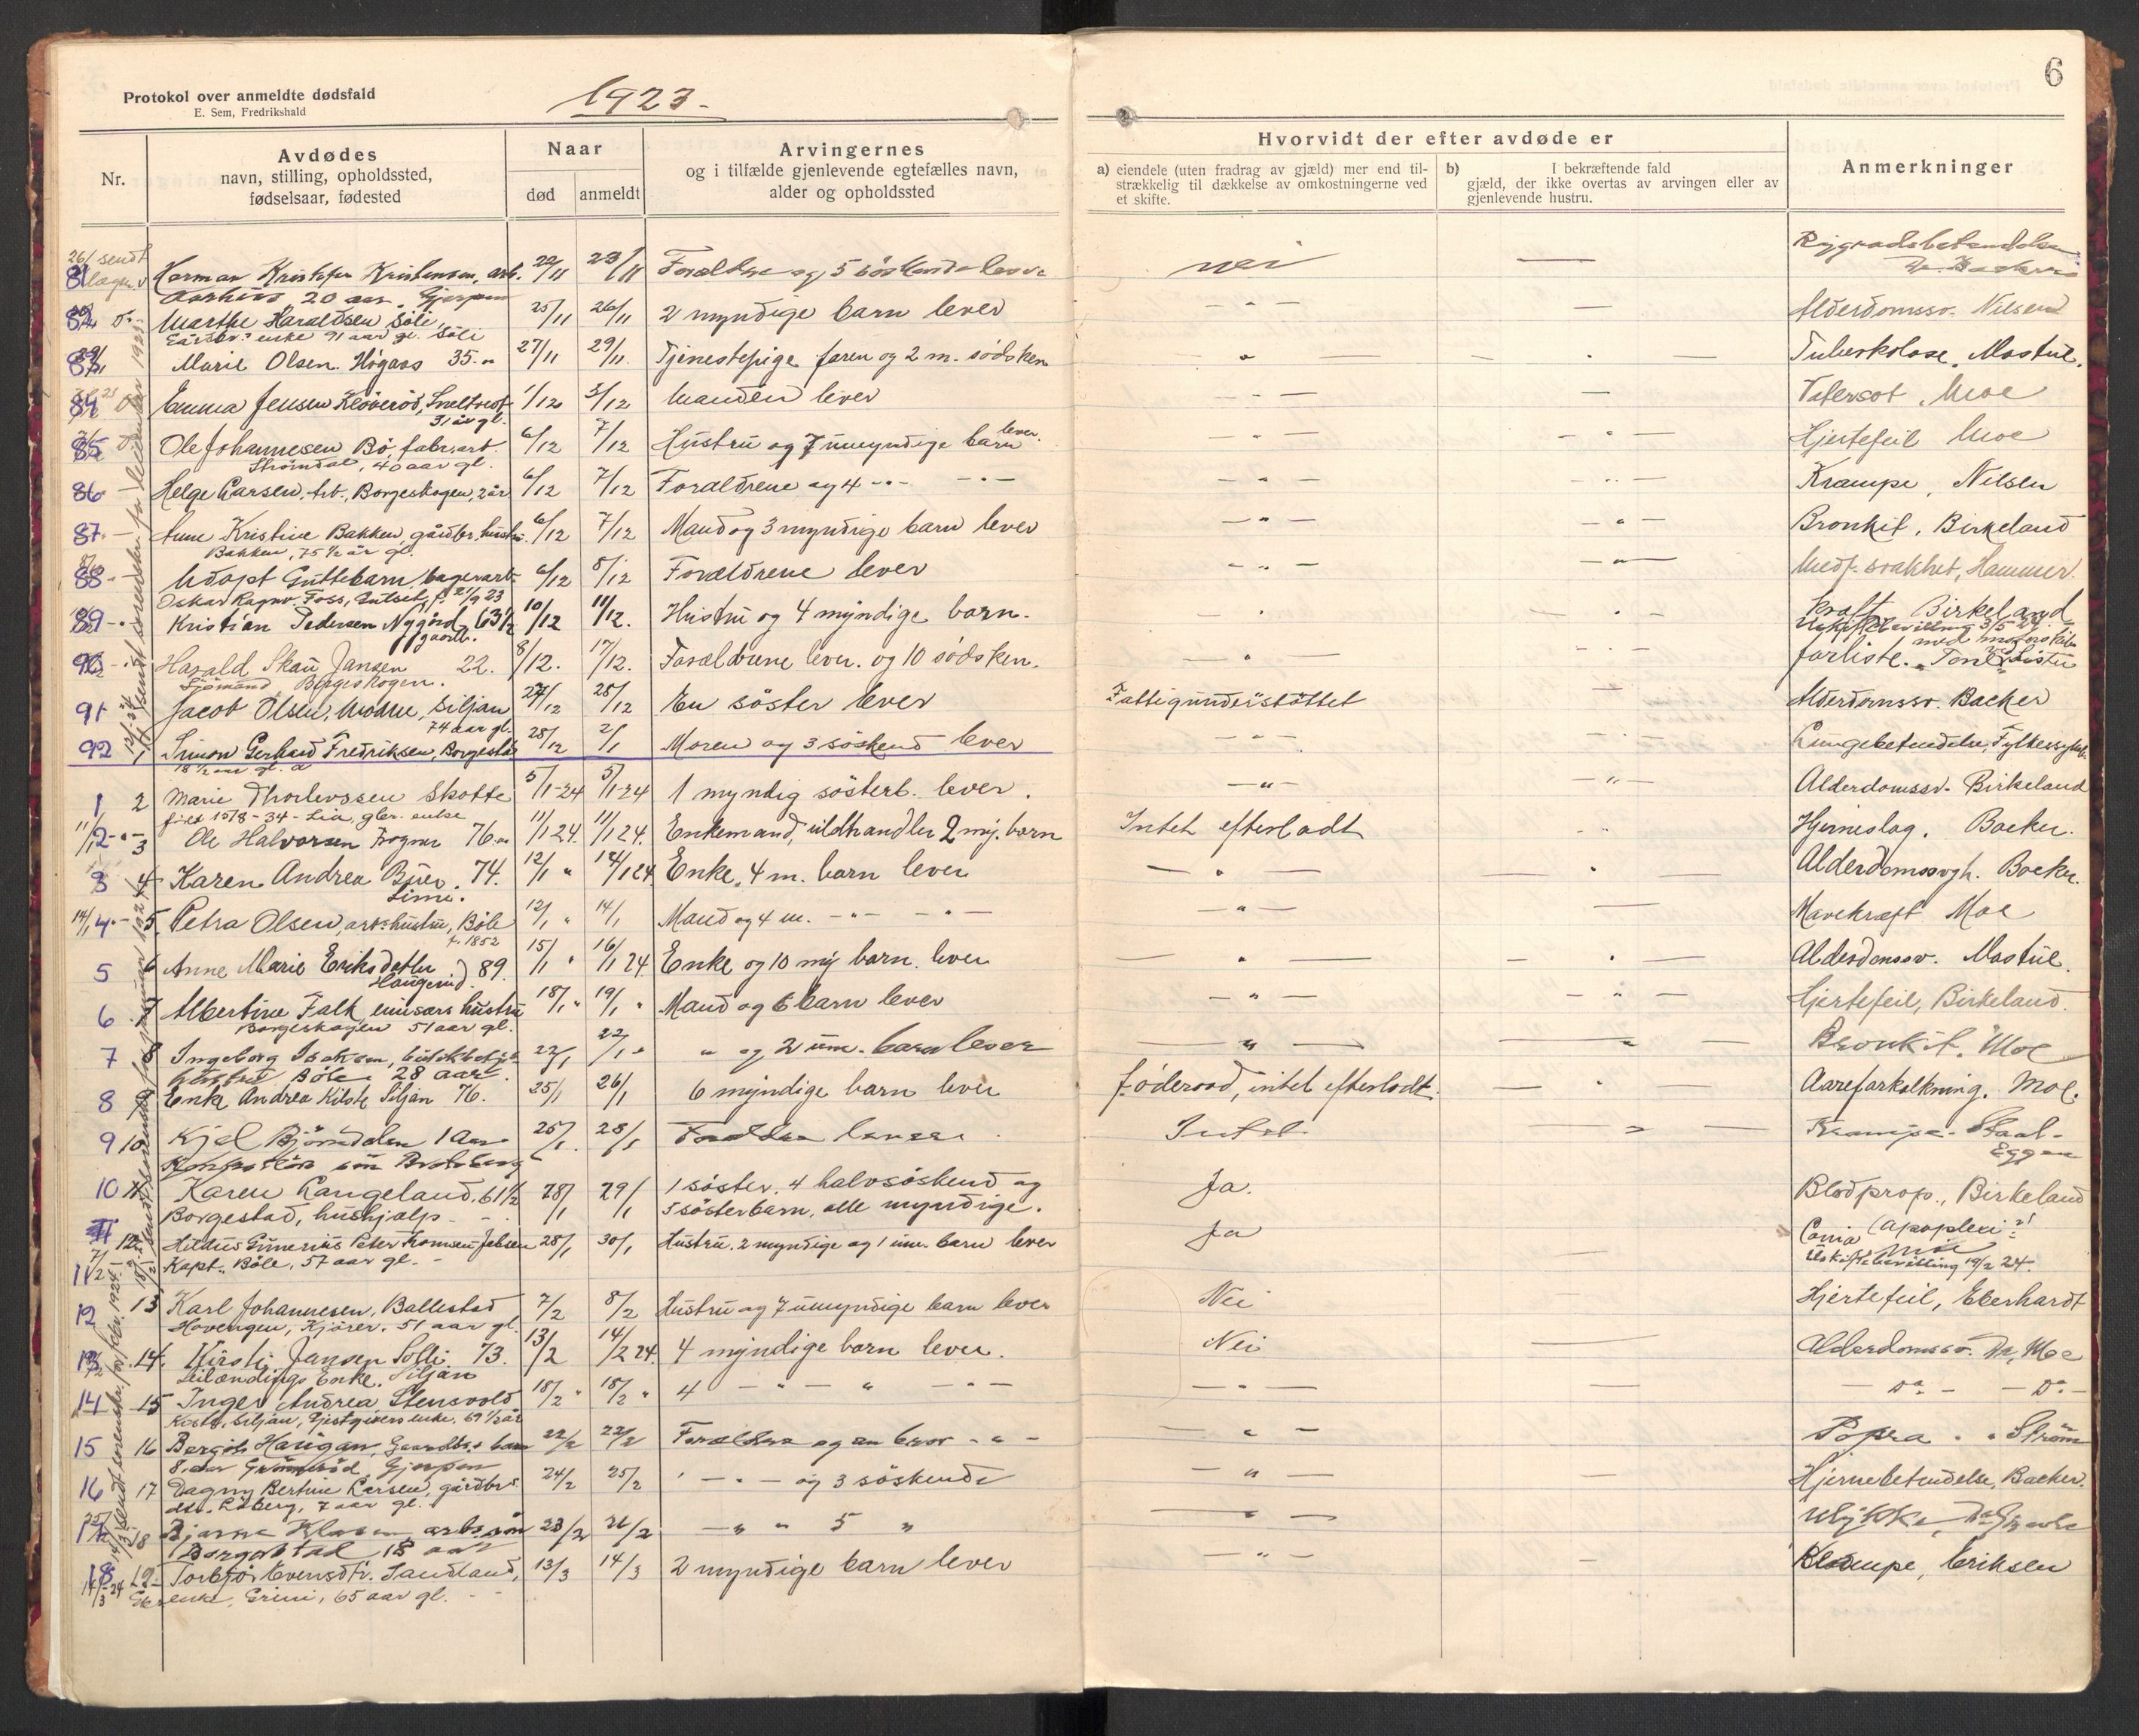 6
Protokol over anmeldte dødsfald
E. Sem, Fredrikshald
1923.
Nr.
Avdødes
navn, stilling, opholdssted,
fødselsaar, fødested
Naar
død
anmeldt
Arvingernes
og i tilfælde gjenlevende egtefælles navn,
alder og opholdssted
Hvorvidt der efter avdøde er
a) eiendele (uten fradrag av gjæld) mer end til-
strækkelig til dækkelse av omkostningerne ved
et skifte.
b) I bekræftende fald
gjæld, der ikke overtas av arvingen eller av
gjenlevende hustru.
Anmerkninger
81 Herman Kristofer Kristensen, arb. 22/11 23/11 Forældre og 5 søskende lever nei —
20 aar, Gjerpen
82 Marthe Haraldsen Søli, 25/11 26/11 2 myndige barn lever - " - — Alderdomssv. Nilsen
enke 91 aar gl. Søli
83 Marie Olsen Høgaas 35 27/11 29/11 Tjenestepige faren og 2 m. sødsken — " — — " — Tuberkolose. Mostul.
84 Emma Jensen Kløverød, 1/12 3/12 Manden lever - " - — Moe
31 år gl.
85 Ole Johannesen Bø, fabr.arb. 6/12 7/12 Hustru og 7 umyndige barn lever. - " - - " - Hjertefeil Moe
Strømdal, 40 aar gl.
86 Helge Larsen, Borgeskogen, 2 år 6/12 7/12 Forældrene og 4 - " - - " - - " - - " - Krampe, Nilsen
87 Anne Kristine Bakken, gårdbr. hustru 6/12 7/12 Mand og 3 myndige barn lever - " - - " - Bronkit, Birkeland
Bakken, 75 1/2 år gl.
88 Udøpt Guttebarn 6/12 8/12 Forældrene lever - " - - " - Medf. svakhet, Hammer.
Oskar Ragnv. Foss, f. 21/9 23
89 Kristian Pedersen Nygård 63 1/2 10/12 11/12. Hustru og 4 myndige barn. - " - — " — Birkeland
gaardb.
90 Harald Skau Jansen 22. 8/12. 17/12. Forældrene lever. og 10 sødsken. — " — - " - forliste.
Sjømand Borgeskogen.
91 Jacob Olsen, Moheim, Siljan 27/12 28/12 En søster lever Fattigunderstøttet — Alderdomssv. Backer
74 aar gl.
92 Simon Gerhard Fredriksen, Borgestad 28/12 2/1 Moren og 3 søskend lever - " - - " - Lungebetendelse, Fylkessykeh.
18 1/2 aar gl.
1 2 Marie Thorlevssen Skotte 5/1-24 5/1-24 1 myndig søsterb. lever. - " - - " - Alderdomssv. Birkeland
født 15/8-34 - Lia, gbr. enke
2 3 Ole Halvorsen Fogner 76 11/1 24. 11/1 24. Enkemand, uldhandler 2 my. barn Intet efterladt " Hjerneslag. Backer.
3 4 Karen Andrea Buer. 74. 12/1 " 14/1 24 Enke, 4 m. barn lever — " — " Backer.
Limi.
14/1 4 5. Petra Olsen, arb. hustru, Bøle 12/1 " 14/1 Mand og 4 m. - " - - " - - " - — Mavekræft Moe
f. 1852
5 6 Anne Marie Eriksdatter 89. 15/1 " 16/1 24 Enke og 10 my barn lever — " — — " — Alderdomssv. Mostul.
Haugerud.
6 7 Albertine Falk, hustru 18/1 " 19/1 " Mand og 6 barn lever - " - - " - Hjertefeil, Birkeland.
Borgeskogen 51 aar gl.
7 8 Ingeborg Isaksen, 22/1 22/1 " " og 2 um. barn lever — " — — " — Bronkit. Moe
hustru Bøle 28 aar.
8 9 Enke Andrea Kilste Siljan 76. 25/1 26/1 6 myndige barn lever føderaad, intet efterladt. — " — Aareforkalkning. Moe.
9 10 Kjel Bjørndalen 1 Aar 25/1. 28/1 Forældre lever. Intet — " — Krampe - Staal-
Eggen
10 11 Karen Langeland, 61 1/2 28/1 29/1 1 søster, 4 halvsøskend og Ja. Blodprop., Birkeland
Borgestad, hushjælp 5 søsterbarn, alle myndige.
11 12 Peter Tromsen Jebsen 28/1 30/1 Hustru, 2 myndige og 1 um. barn lever Ja (apoplexi?)
Kapt., Bøle, 57 aar gl. Uskiftebevilling 19/2 24.
12 13 Karl Johannesen, Ballestad 7/2 8/2 Hustru og 7 umyndige barn lever Nei — Hjertefeil, Eberhardt
Hovengen, Kjører, 51 aar gl.
13 14. Kirsti Jansen Solli. 73. 13/2 14/2 24. 4 myndige barn lever. Nei — Alderdomssv. Dr. Moe
Enke. Siljan
14 15 Inger Andrea Stensvold 18/2 " 18/2 " 4 - " - " - " - - " - — Do. - Do. -
Siljan, Gjestgivers enke, 69 1/2 år
15 16 Bergit Haugan, Gaardbr. barn 22/2 22/2 Forældre og en bror - " - - " - Strøm
8 aar Gjerpen
16 17 Dagny Bertine Larsen, gårdbr. 24/2 25/2 " - " - og 3 søskende - " - Hjernebetendelse, Backer.
dtr. 7 aar gl.
17 18 Bjarne Klasen arb. søn 23/2 26/2 - " " 5 " — " — Ulykke
Borgestad 18 aar
18 19 Torbjør Evensdtr. Sandland, 13/3 14/3 2 myndige barn lever - " - — Krampe, Eriksen
enke, Grini, 65 aar gl.